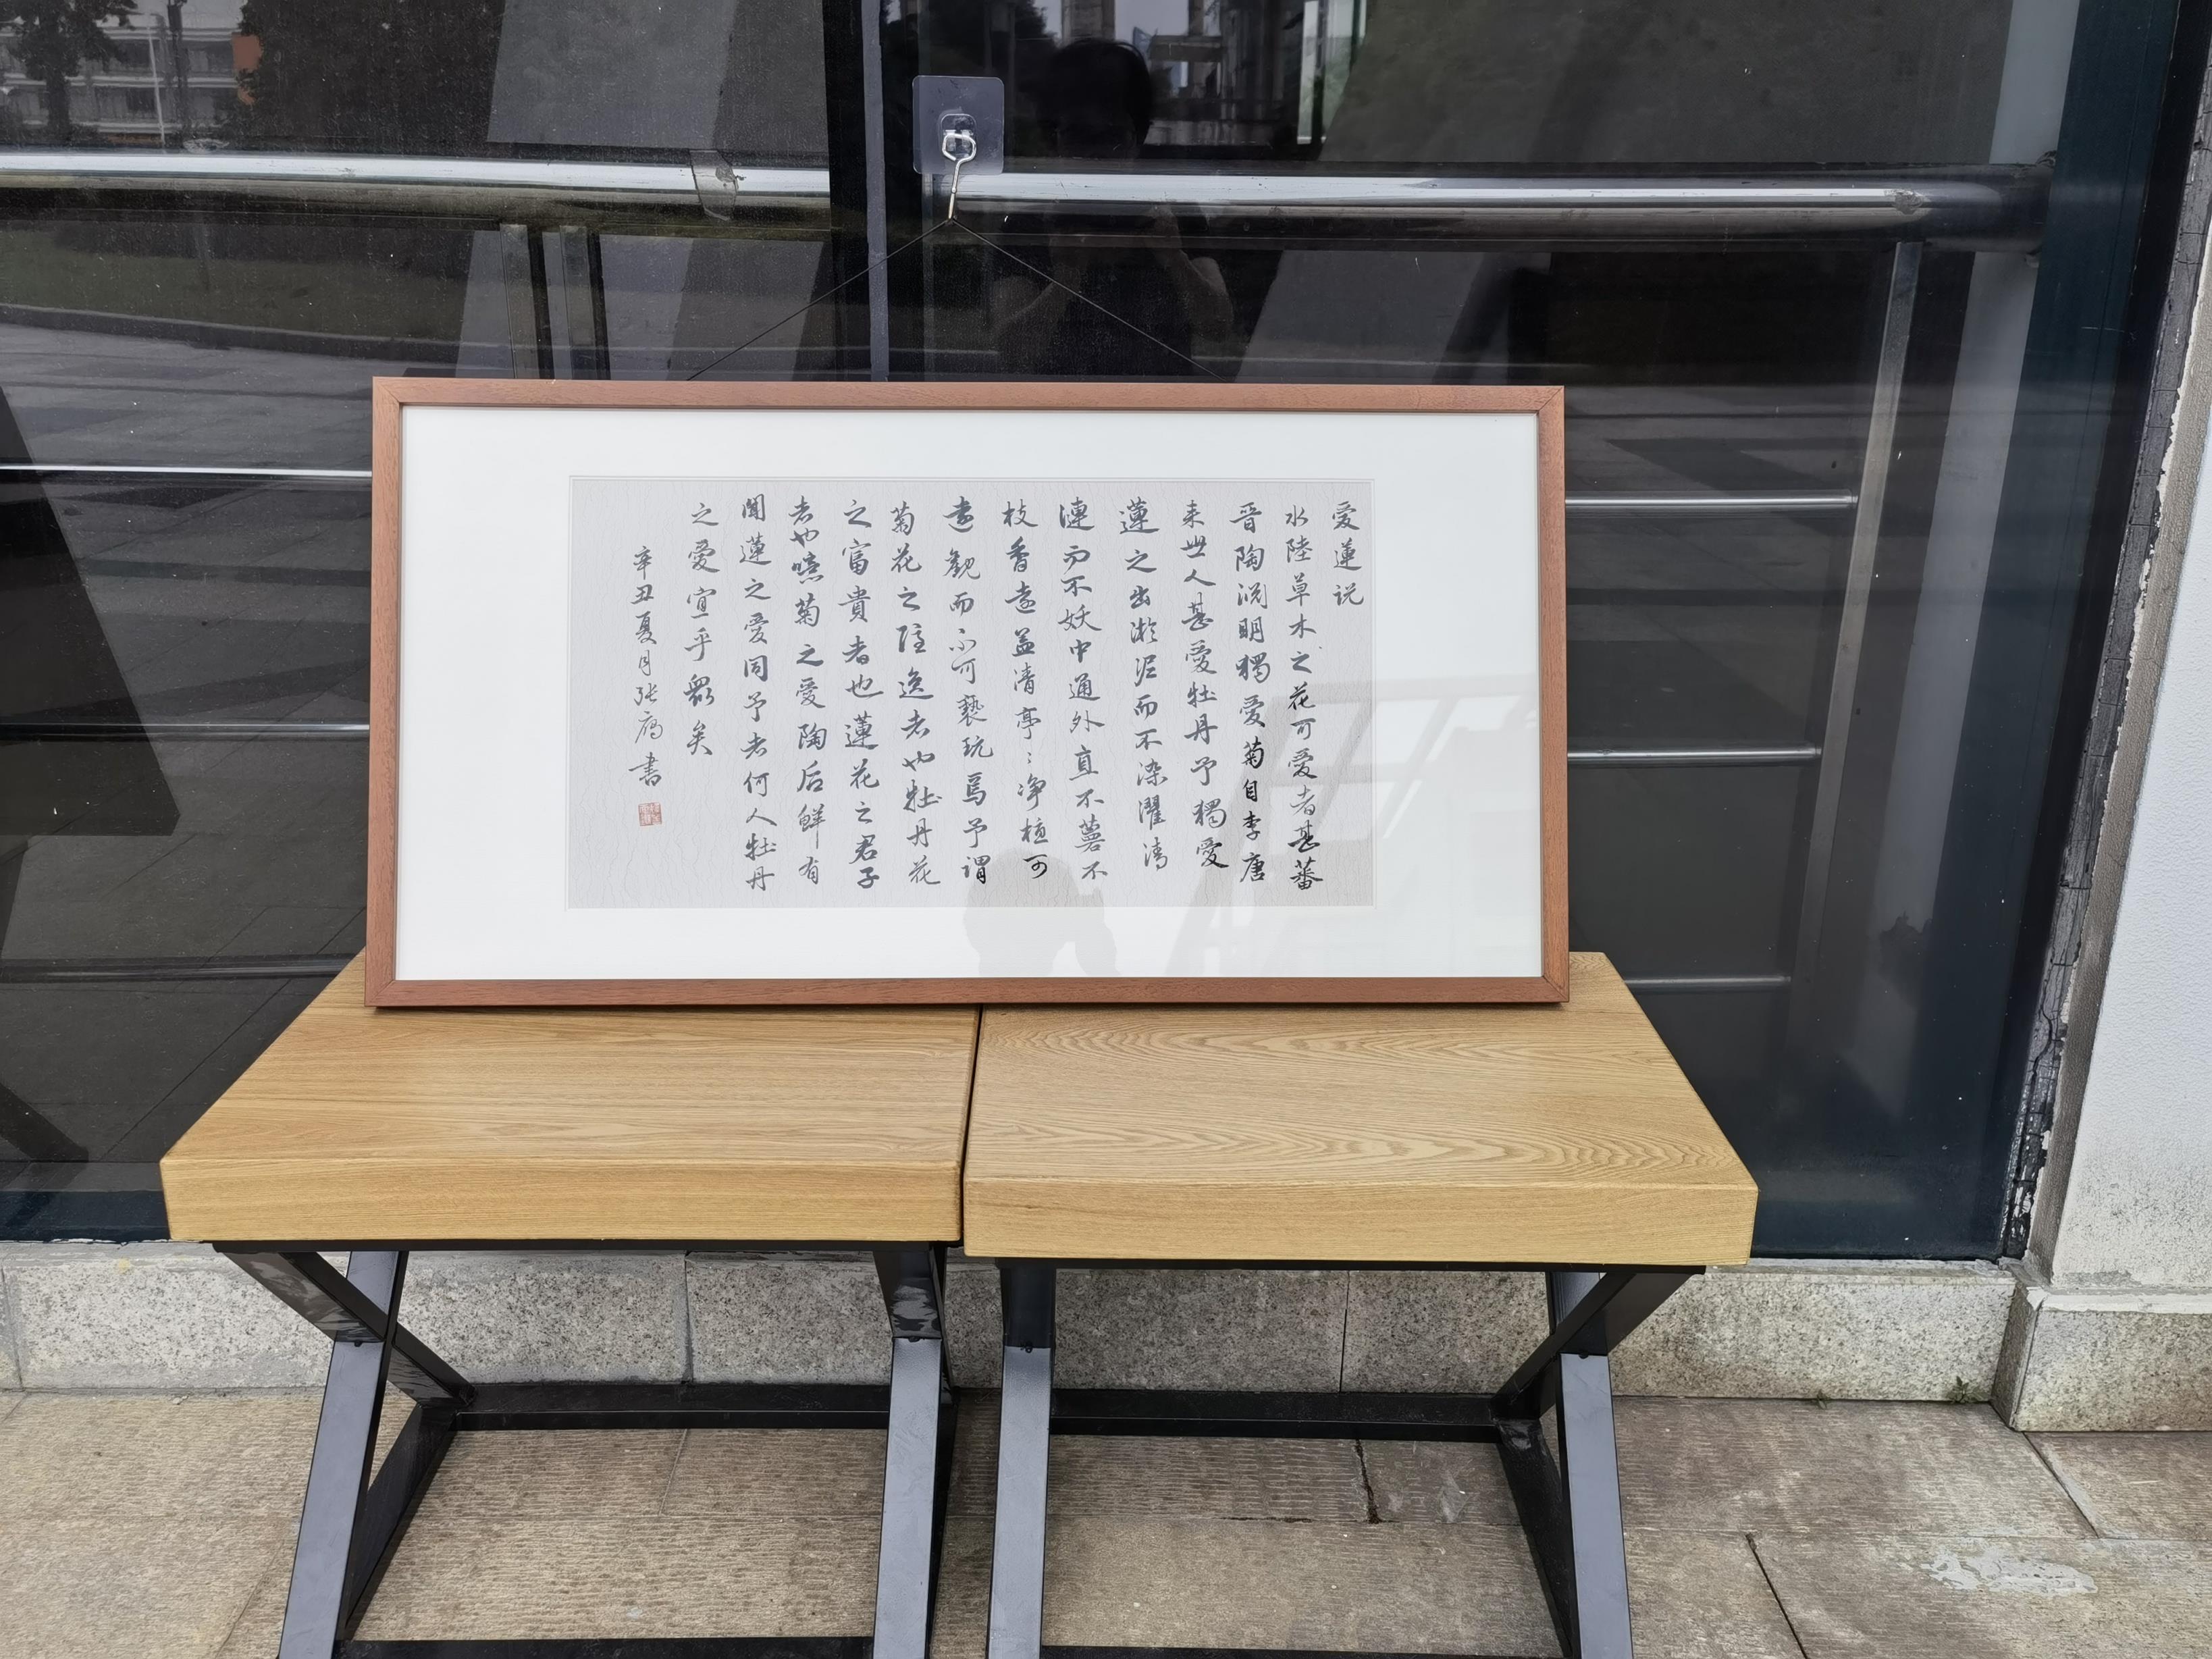 愛蓮说
水陸草木之花可愛者甚蕃
晋陶渊明獨愛菊自李唐
来世人甚愛牡丹予獨愛
蓮之出淤泥而不染濯清
漣而不妖中通外直不蔓不
枝香遠益清亭〻净植可
遠觀而不可褻玩焉予謂
菊花之隐逸者也牡丹花
之富貴者也蓮花之君子
者也噫菊之愛陶后鲜有
聞蓮之愛同予者何人牡丹
之愛宜乎衆矣
辛丑夏月张書